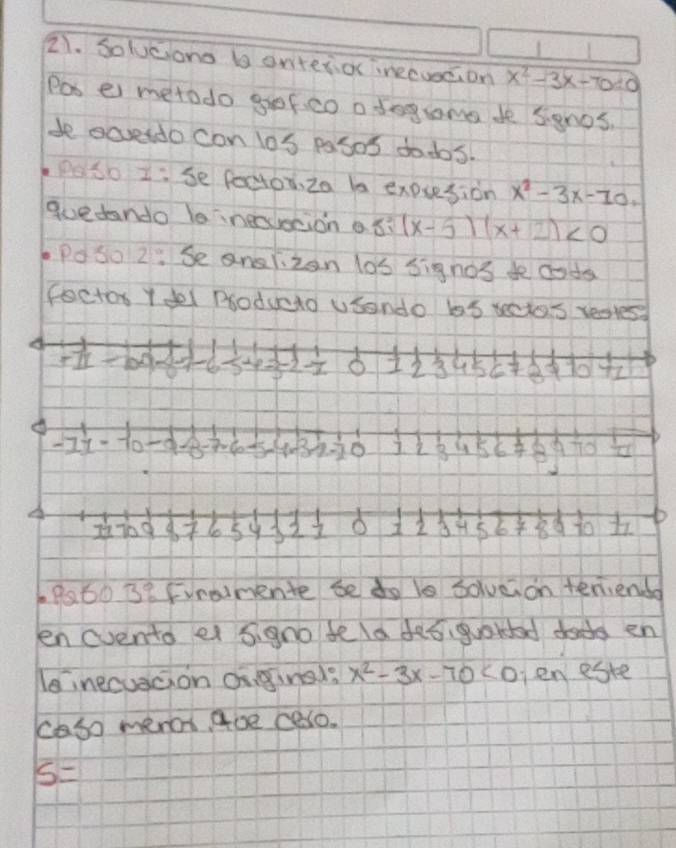 21. Soluciona la anterior inecuación x²-3x-10<0
Por el metodo grafico o diagrama de signos.
de acuerdo con los pasos dados.
• Paso 1: Se factoriza la expresión x²-3x-10.
quedando la inecuación así: (x-5)(x+2)<0
• Paso 2: Se analizan los signos de cada
factor y del producto usando las rectas reales:
-11 -10 -9 -8 -7 -6 -5 -4 -3 -2 -1 0 1 2 3 4 5 6 7 8 9 10 11
-11 -10 -9 -8 -7 -6 -5 -4 -3 -2 -1 0 1 2 3 4 5 6 7 8 9 10 11
11 10 9 8 7 6 5 4 3 2 1 0 1 2 3 4 5 6 7 8 9 10 11
• Paso 3: Finalmente se da la solución teniendo
en cuenta el signo de la desigualdad dada en
la inecuación original: x²-3x-10<0, en este
caso menor que cero.
S=